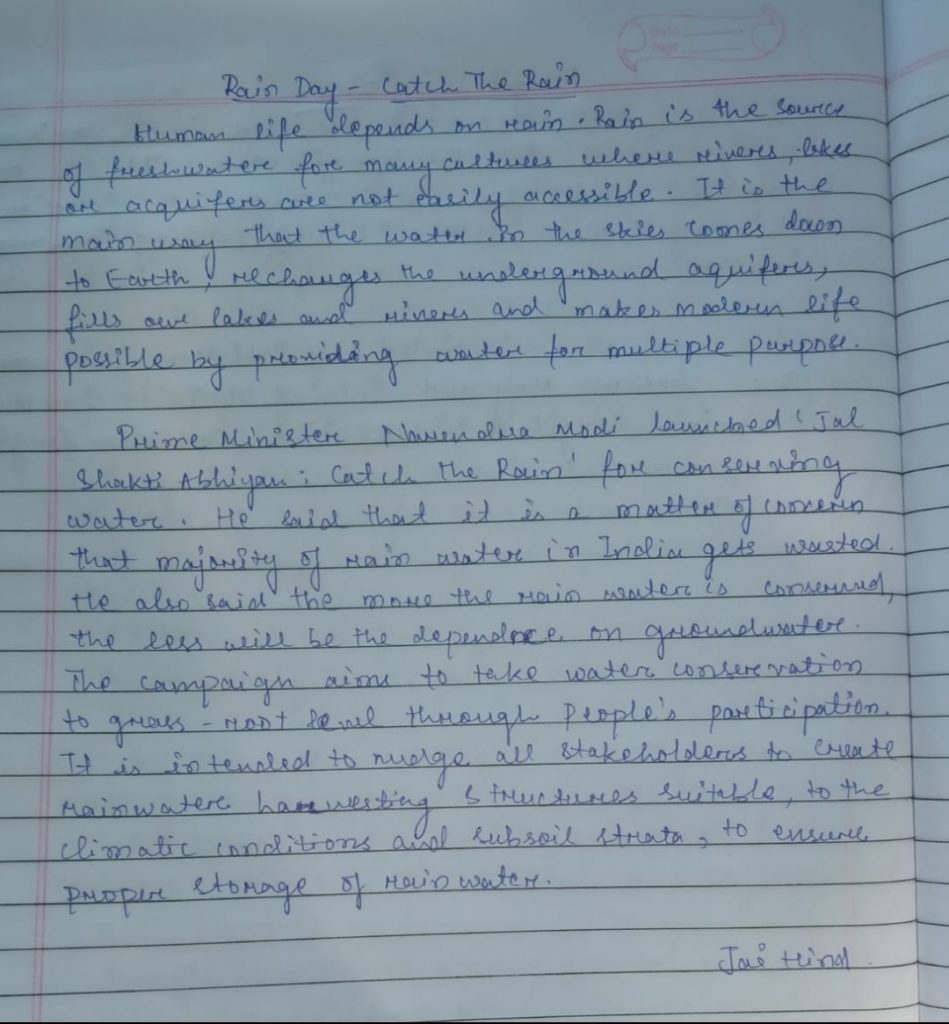 Date
Page
Rain Day - Catch The Rain
Human life depends on rain. Rain is the source
of freshwater for many cultures where rivers, lakes
are acquifers are not easily accessible. It is the
main way that the water in the skies comes down
to Earth, rechanges the underground aquifers,
fills our lakes and rivers and makes modern life
possible by providing water for multiple purpose.
Prime Minister Narendra Modi launched 'Jal
Shakti Abhiyan: Catch the Rain' for conserving
water. He said that it is a matter of concern
that majority of rain water in India gets wasted.
He also said the more the rain water is conserved,
the less will be the dependnce on groundwater.
The campaign aims to take water conservation
to grass-root level through People's participation.
It is intended to nudge all stakeholders to create
rainwater harvesting structures suitable, to the
climatic conditions and subsoil strata, to ensure
proper storage of rain water.
Jai Hind.